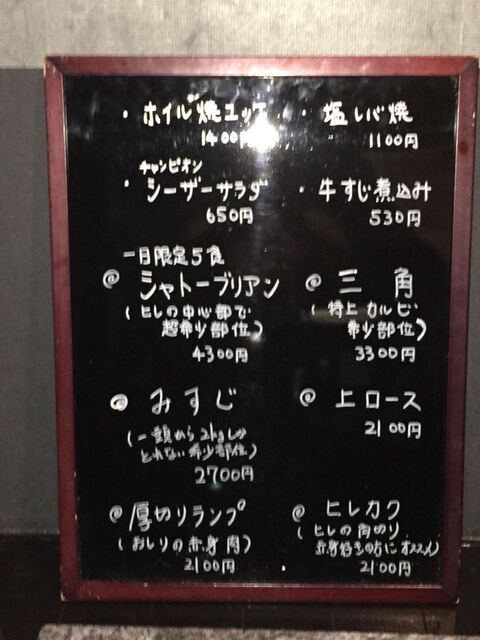 ・ホイル焼ユッケ
1400円
・塩レバ焼
1100円
チャンピオン
・シーザーサラダ
650円
・牛すじ煮込み
530円
一日限定5食
@ シャトーブリアン
(ヒレの中心部で
超希少部位)
4300円
@ 三角
(特上カルビ
希少部位)
3300円
@ みすじ
(一頭から2kgしか
とれない希少部位)
2700円
@ 上ロース
2100円
@ 厚切りランプ
(おしりの赤身肉)
2100円
@ ヒレカク
(ヒレの角切り
赤身好きの方にオススメ)
2100円